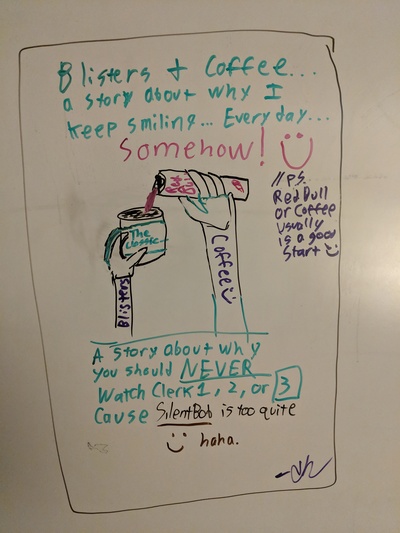 Blisters + Coffee...
a story about why I
keep smiling... Every day...
Somehow!
// P.S.
Red Bull
or Coffee
usually
is a good
Start
Red
Bull
The
Classic...
Coffee
Blisters
A Story about why
you should NEVER
Watch Clerk 1, 2, or 3
Cause SilentBob is too quite
haha.